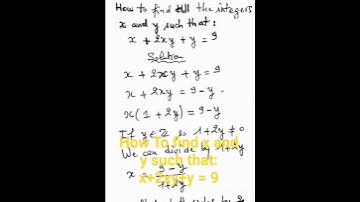 How to find all the integers
x and y such that:
x + 2xy + y = 9
Solution
x + 2xy + y = 9
x + 2xy = 9 - y.
x(1 + 2y) = 9 - y
If y ∈ Z 1+2y ≠ 0
We can divide by 1+2y
x = 9-y / 1+2y
How To find x and
y such that:
x+2xy+y = 9